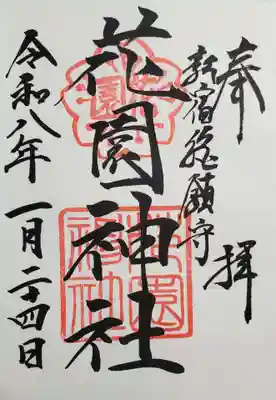 奉拝
新宿總鎮守
花園神社
令和八年 一月二十四日
花園神社